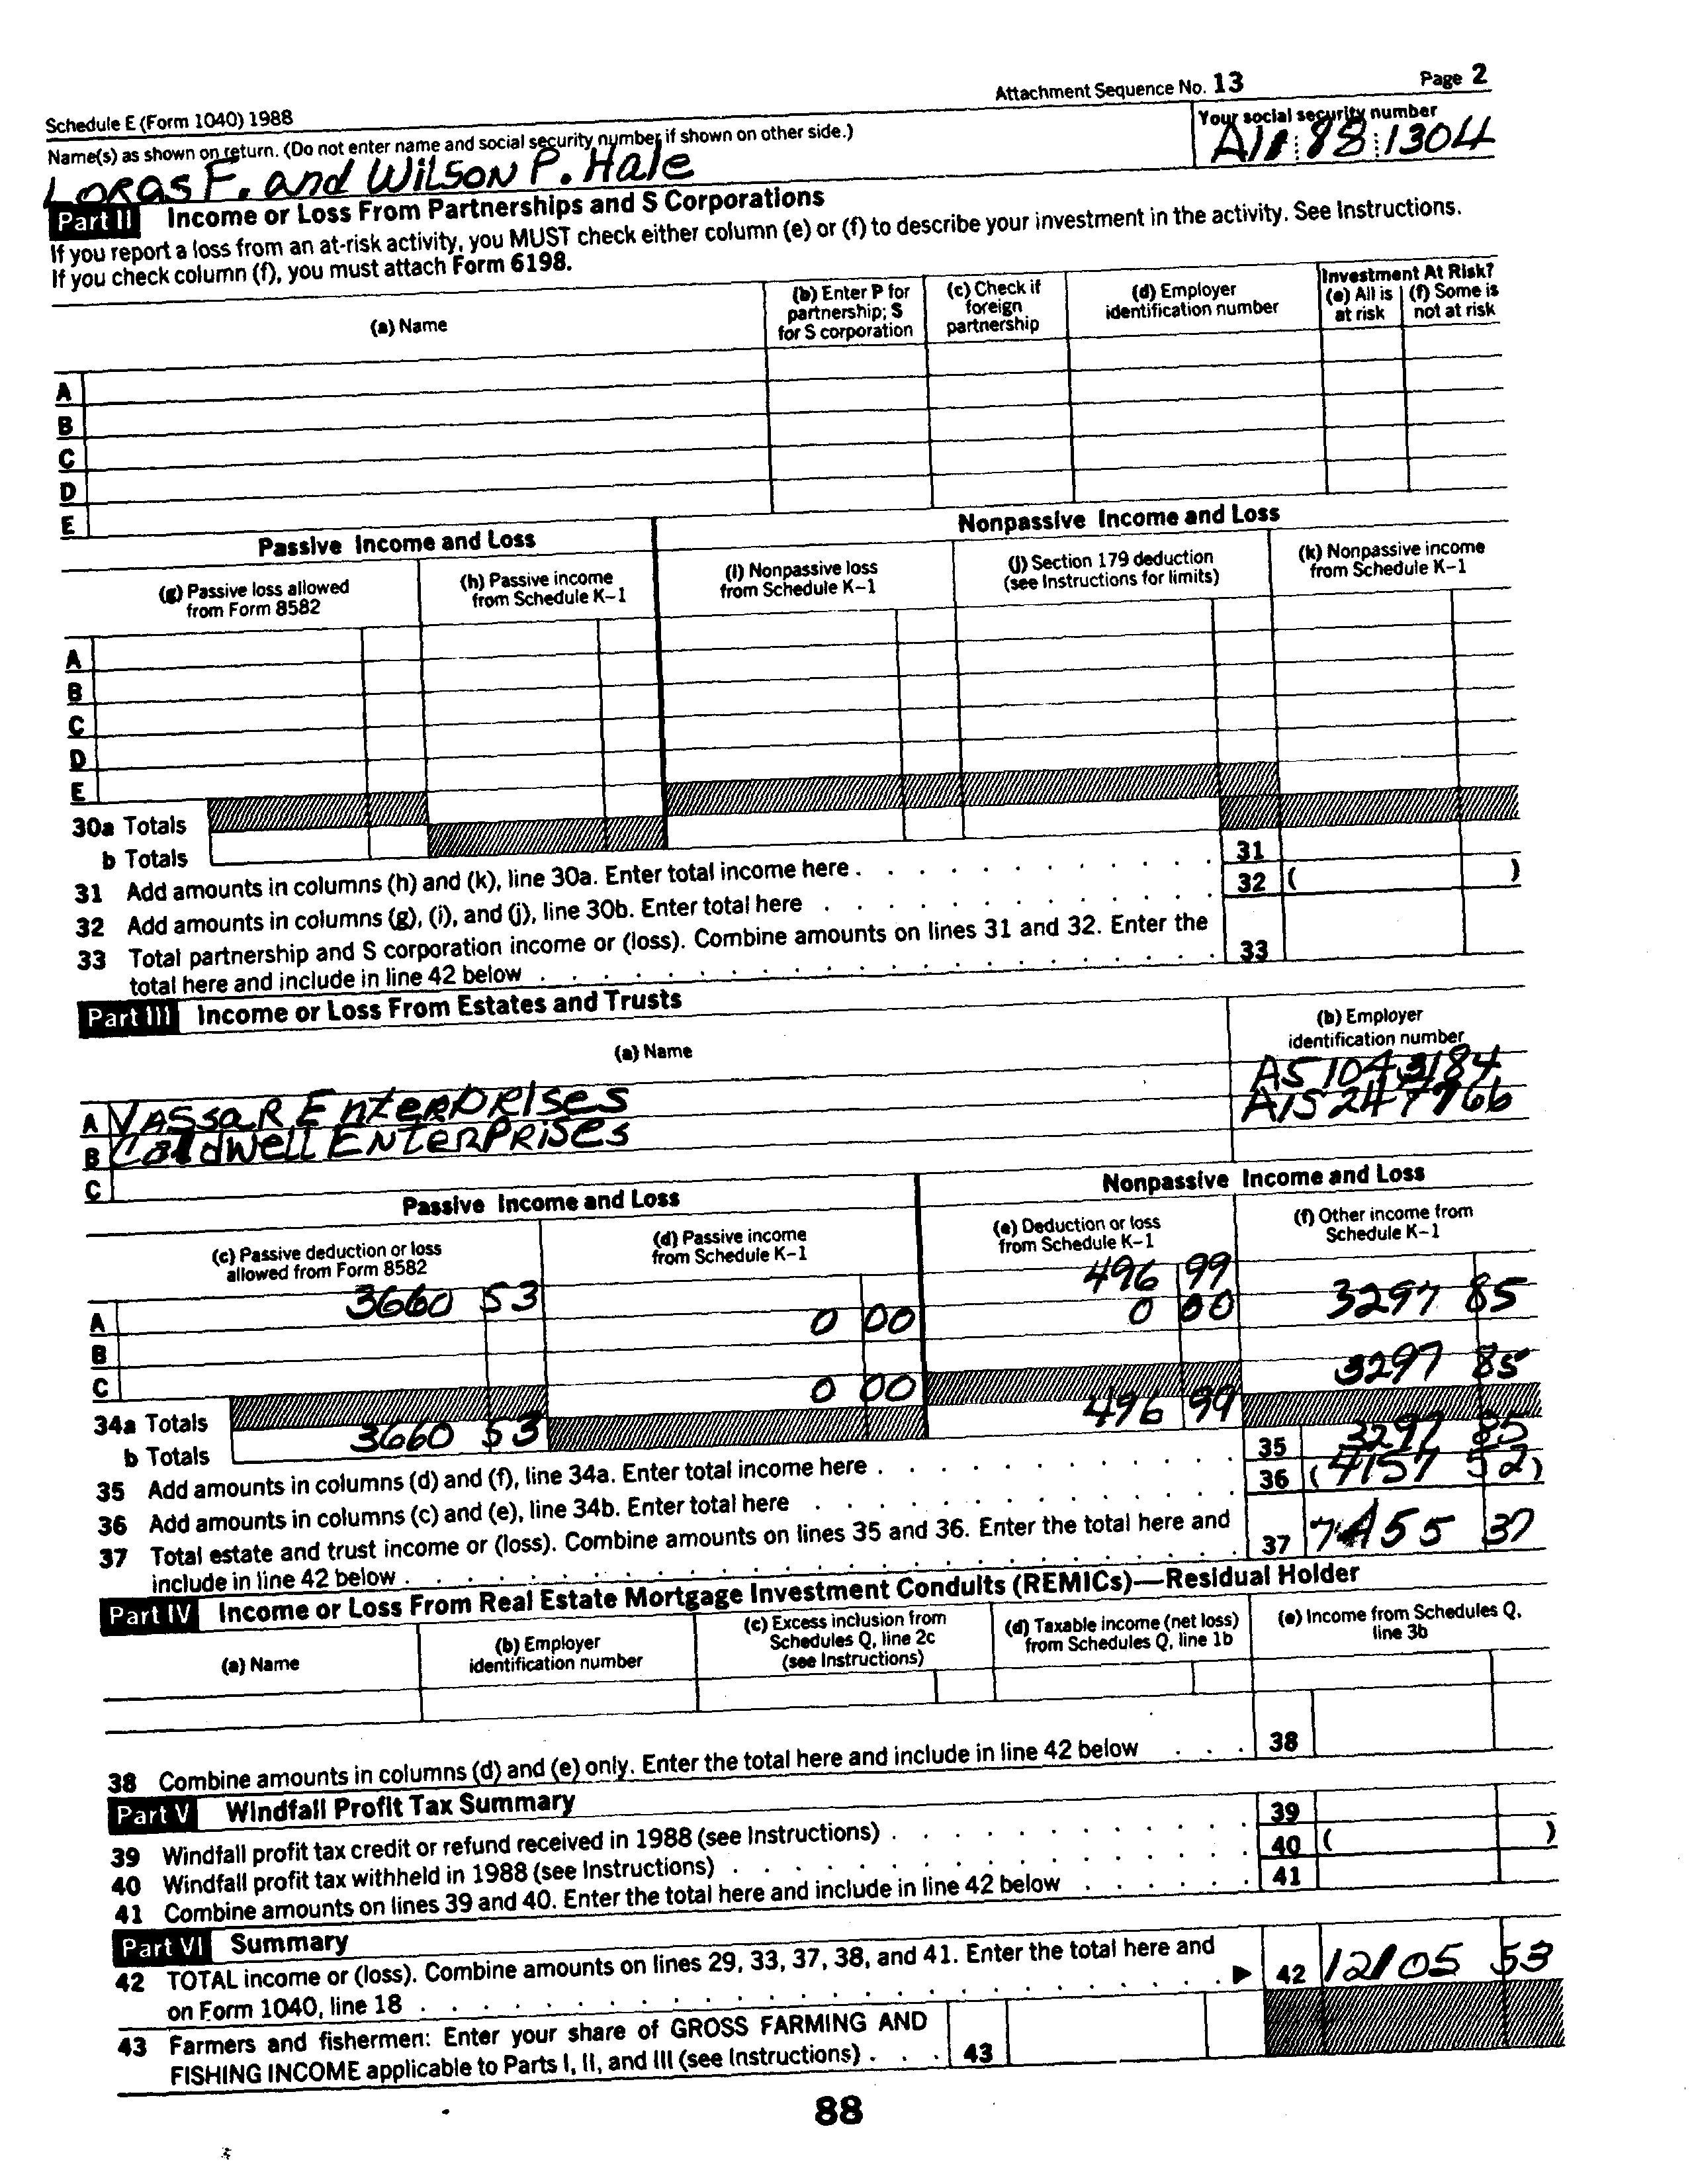 Schedule E (Form 1040) 1988
Attachment Sequence No. 13
Page 2
Name(s) as shown on return. (Do not enter name and social security number if shown on other side.)
Your social security number
Loras F. and Wilson P. Hale
88 1304
Part II Income or Loss From Partnerships and S Corporations
If you report a loss from an at-risk activity, you MUST check either column (e) or (f) to describe your investment in the activity. See Instructions.
If you check column (f), you must attach Form 6198.
(a) Name
(b) Enter P for partnership; S for S corporation
(c) Check if foreign partnership
(d) Employer identification number
Investment At Risk?
(e) All is at risk
(f) Some is not at risk
A
B
C
D
E
Passive Income and Loss
Nonpassive Income and Loss
(g) Passive loss allowed from Form 8582
(h) Passive income from Schedule K-1
(i) Nonpassive loss from Schedule K-1
(j) Section 179 deduction (see Instructions for limits)
(k) Nonpassive income from Schedule K-1
A
B
C
D
E
30a Totals
b Totals
31 Add amounts in columns (h) and (k), line 30a. Enter total income here . 31
32 Add amounts in columns (g), (i), and (j), line 30b. Enter total here . 32 ( )
33 Total partnership and S corporation income or (loss). Combine amounts on lines 31 and 32. Enter the
total here and include in line 42 below . 33
Part III Income or Loss From Estates and Trusts
(a) Name
(b) Employer identification number
A Vassar Enterprises A51043184
B Caldwell Enterprises A15247766
C
Passive Income and Loss
Nonpassive Income and Loss
(c) Passive deduction or loss allowed from Form 8582
(d) Passive income from Schedule K-1
(e) Deduction or loss from Schedule K-1
(f) Other income from Schedule K-1
A 3660 53 0 00 496 99 3297 85
B 0 00
C
34a Totals 0 00 3297 85
b Totals 3660 53 496 99
35 Add amounts in columns (d) and (f), line 34a. Enter total income here . 35 3297 85
36 Add amounts in columns (c) and (e), line 34b. Enter total here . 36 (4157 52)
37 Total estate and trust income or (loss). Combine amounts on lines 35 and 36. Enter the total here and
include in line 42 below . 37 55 37
Part IV Income or Loss From Real Estate Mortgage Investment Conduits (REMICs)—Residual Holder
(a) Name
(b) Employer identification number
(c) Excess inclusion from Schedules Q, line 2c (see Instructions)
(d) Taxable income (net loss) from Schedules Q, line 1b
(e) Income from Schedules Q, line 3b
38 Combine amounts in columns (d) and (e) only. Enter the total here and include in line 42 below . 38
Part V Windfall Profit Tax Summary
39 Windfall profit tax credit or refund received in 1988 (see Instructions) . 39
40 Windfall profit tax withheld in 1988 (see Instructions) . 40 ( )
41 Combine amounts on lines 39 and 40. Enter the total here and include in line 42 below . 41
Part VI Summary
42 TOTAL income or (loss). Combine amounts on lines 29, 33, 37, 38, and 41. Enter the total here and
on Form 1040, line 18 . ▶ 42 12105 53
43 Farmers and fishermen: Enter your share of GROSS FARMING AND
FISHING INCOME applicable to Parts I, II, and III (see Instructions) . 43
88